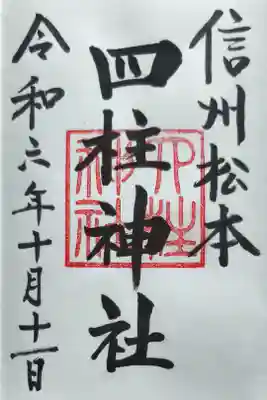 信州松本
四柱神社
令和六年十月十一日
四柱神社